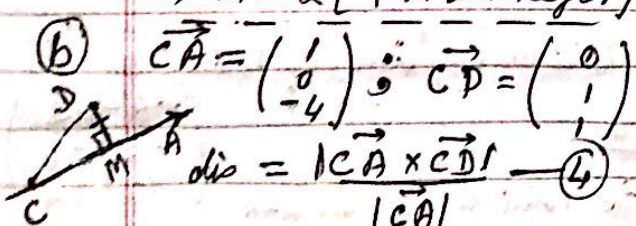 (b) $\overrightarrow{CA} = \begin{pmatrix} 1 \\ 0 \\ -4 \end{pmatrix}$ ; $\overrightarrow{CD} = \begin{pmatrix} 0 \\ 1 \\ 1 \end{pmatrix}$
D
M
A
C
dis = $\frac{|\overrightarrow{CA} \times \overrightarrow{CD}|}{|\overrightarrow{CA}|}$ — (4)